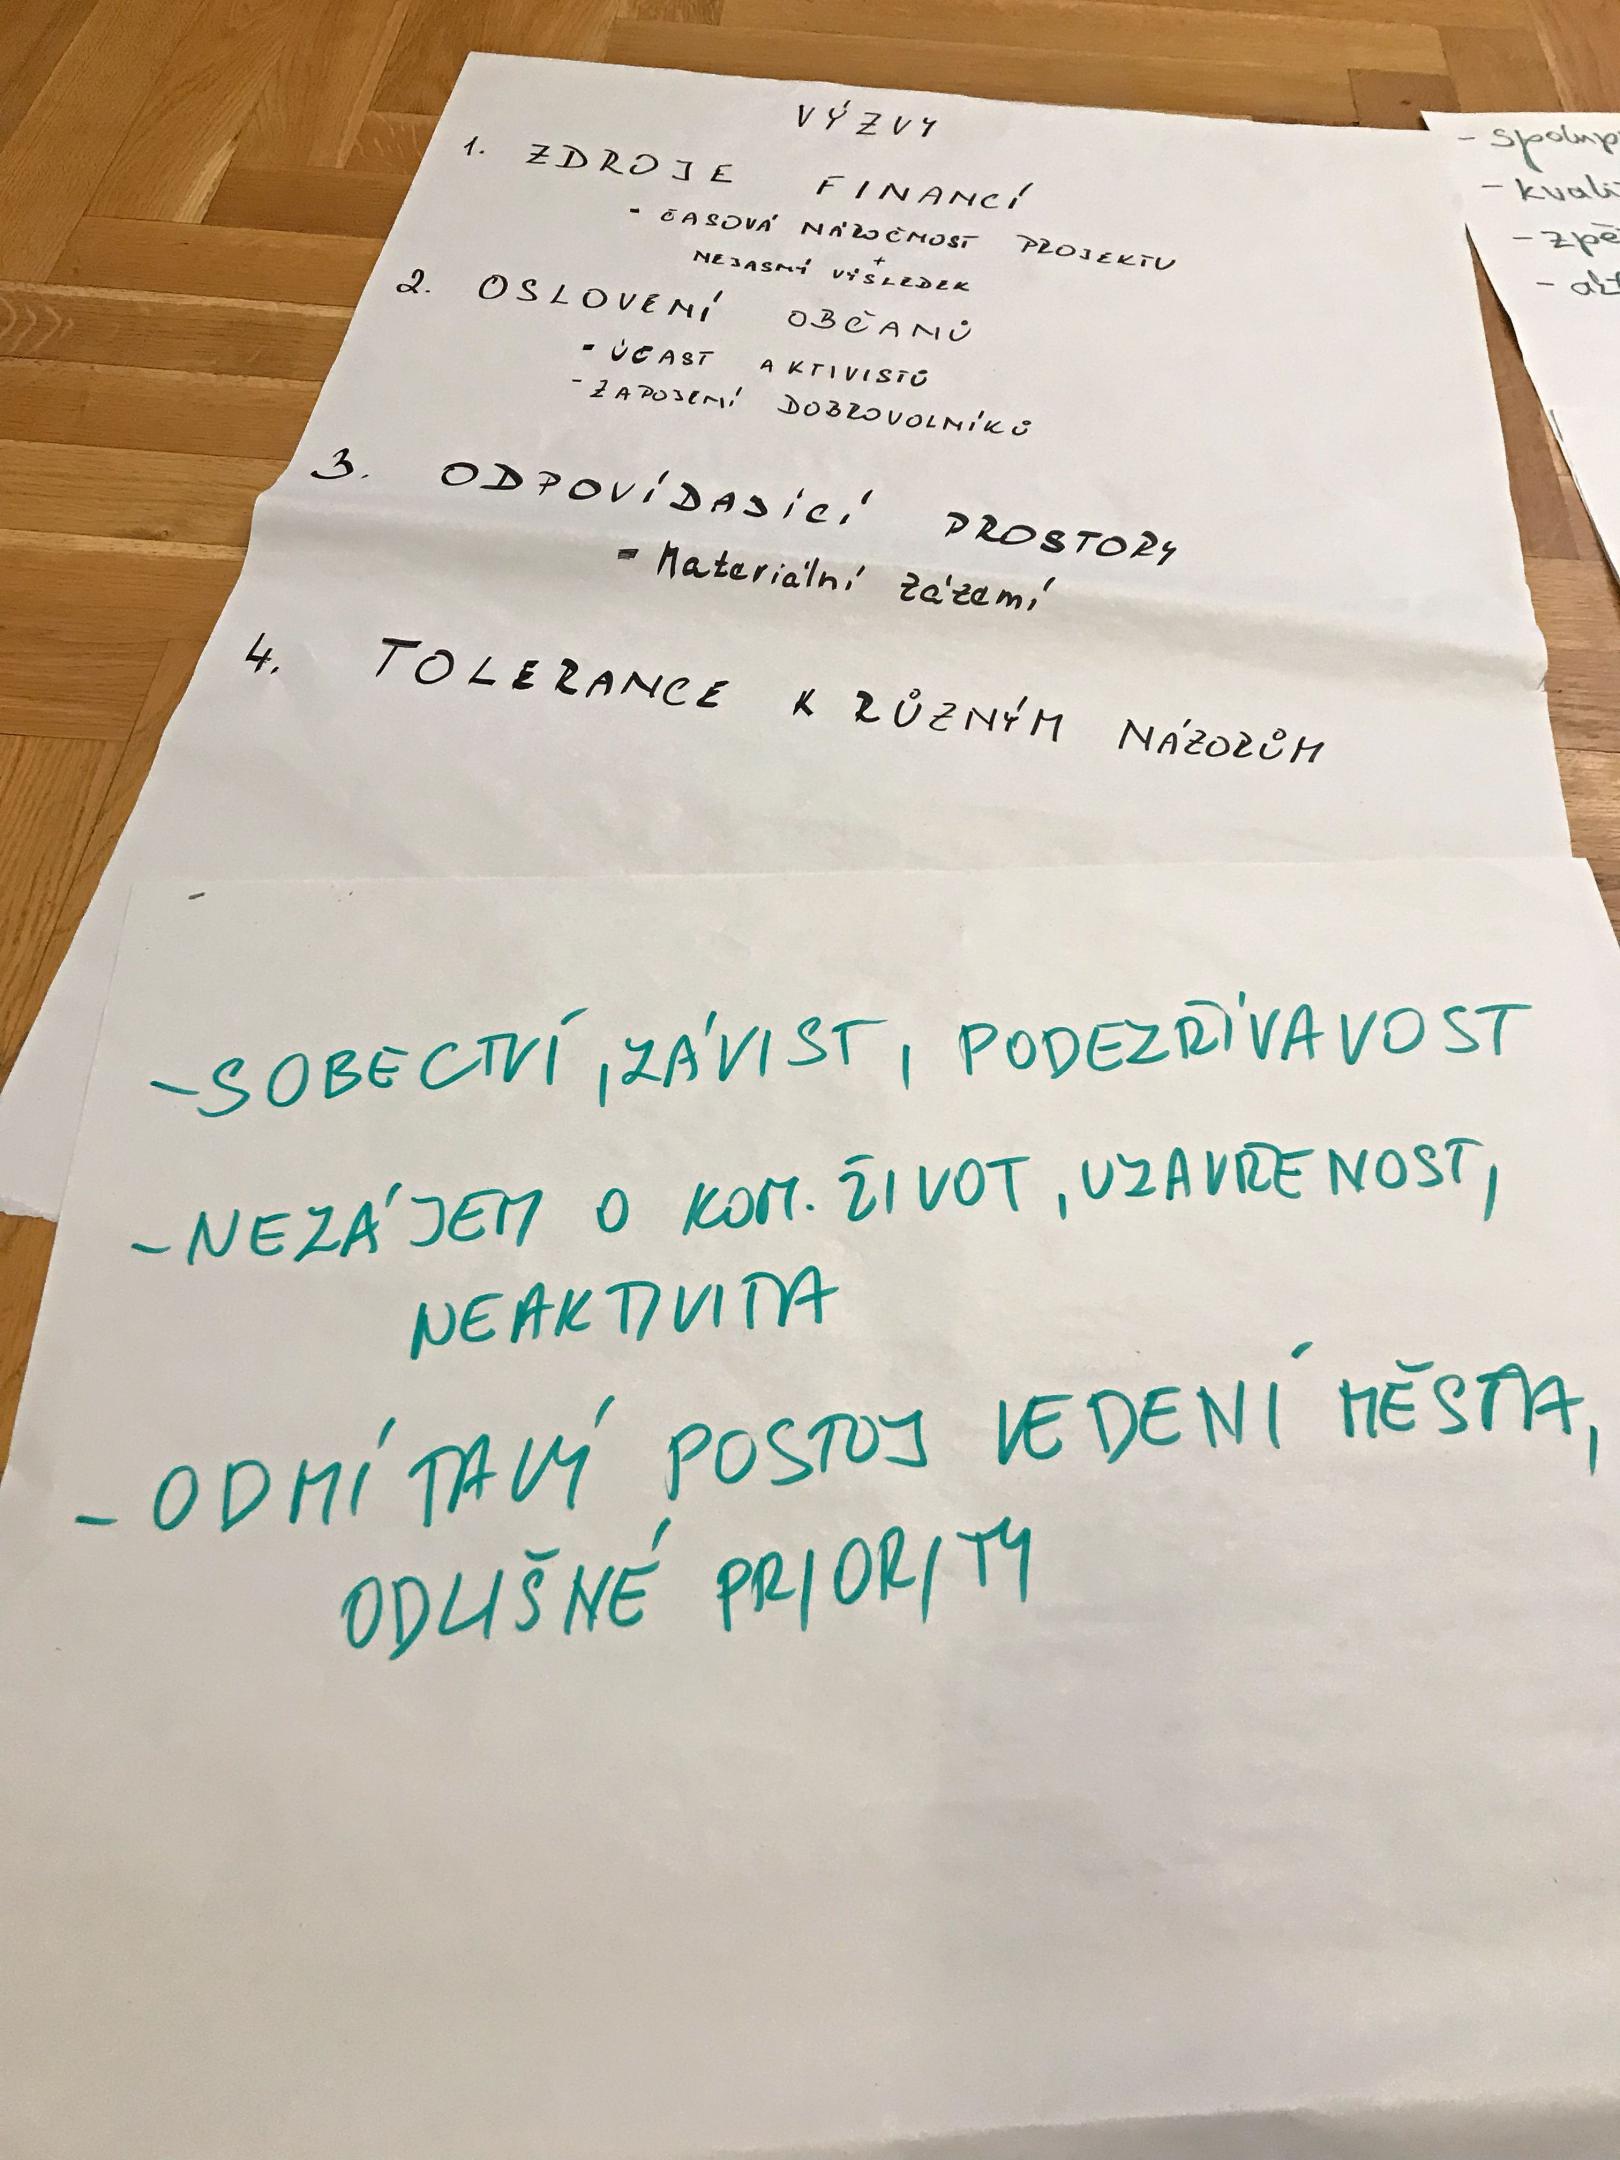 VÝZVY
1. ZDROJE FINANCÍ
- ČASOVÁ NÁROČNOST PROJEKTU
+
NEJASNÝ VÝSLEDEK
2. OSLOVENÍ OBČANŮ
- ÚČAST AKTIVISTŮ
- ZAPOJENÍ DOBROVOLNÍKŮ
3. ODPOVÍDAJÍCÍ PROSTORY
- Materiální zázemí
4. TOLERANCE K RŮZNÝM NÁZORŮM
- SOBECTVÍ, ZÁVIST, PODEZŘÍVAVOST
- NEZÁJEM O KOM. ŽIVOT, UZAVŘENOST,
NEAKTIVITA
- ODMÍTAVÝ POSTOJ VEDENÍ MĚSTA,
ODLIŠNÉ PRIORITY